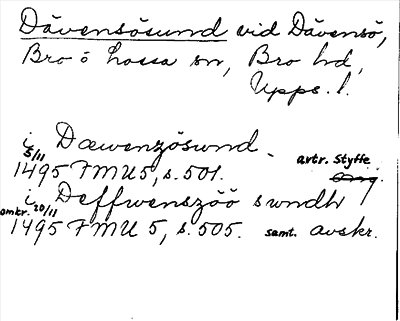 Dävensösund vid Dävensö,
Bro o Lossa sn, Bro hd,
Upps. l.
i Dæwenzösund.
5/11 1495 FMU 5, s. 501. avtr. Styffe
i Deffwenszöö swndh
omkr. 20/11 1495 FMU 5, s. 505. samt. avskr.